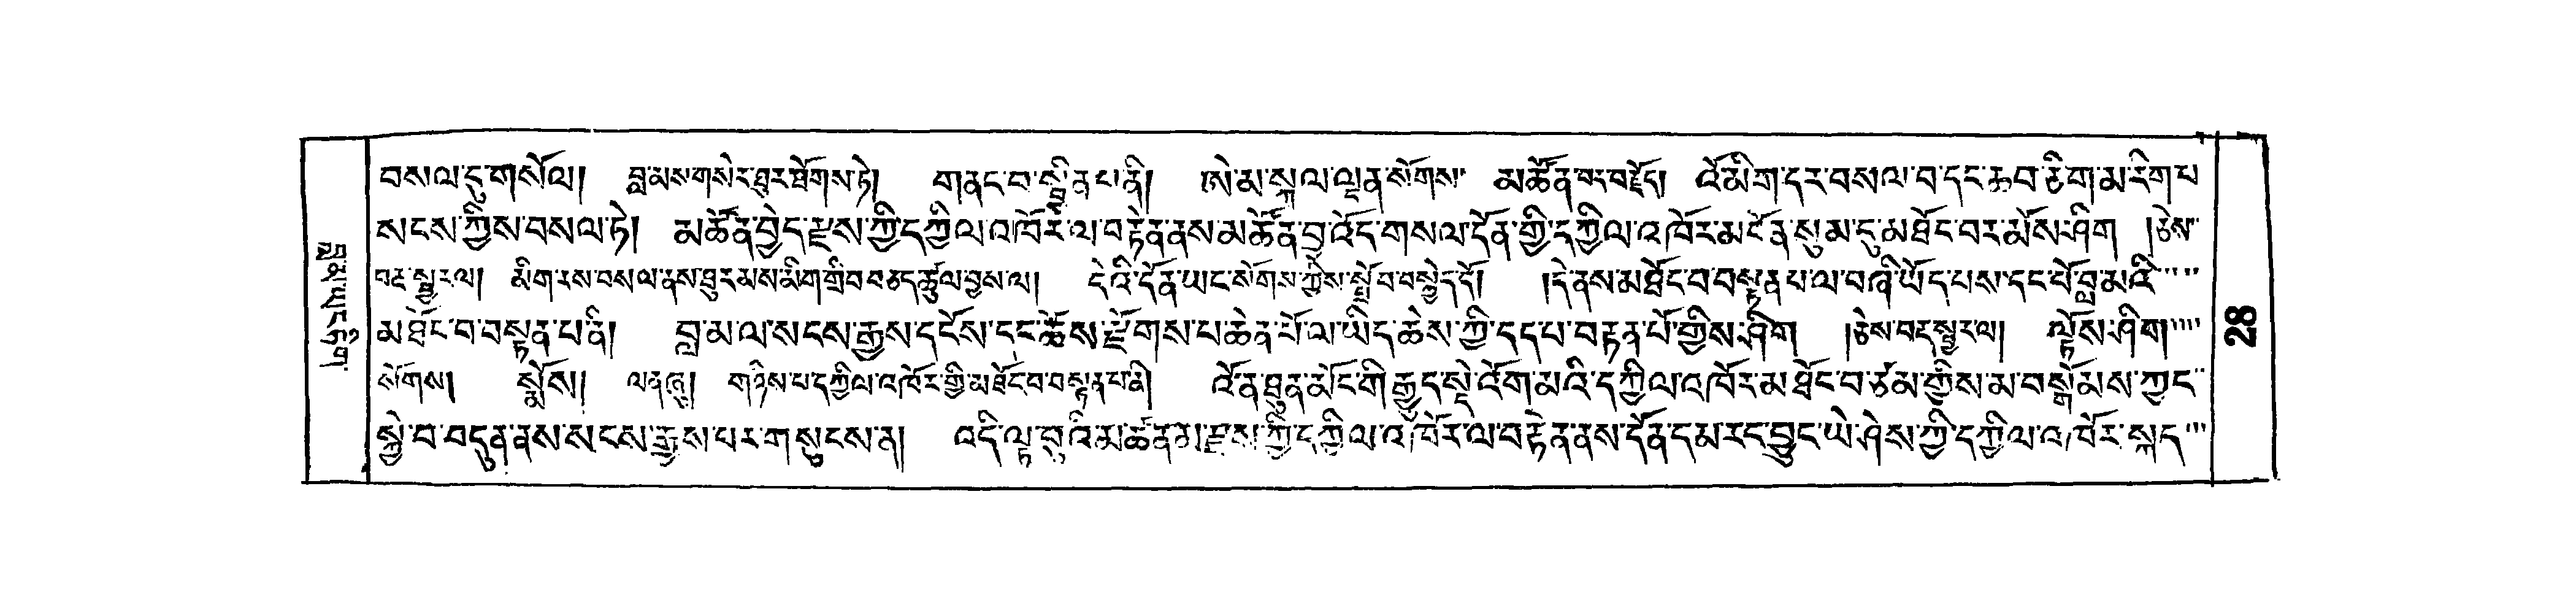 བསལ་དུ་གསོལ། བླ་མས་གསེར་ཐུར་ཐོགས་ཏེ། གནང་བ་སྦྱིན་པ་ནི། ཨེ་མ་སྐལ་ལྡན་སོགས་ མཚོན་བར་བརྗོད། འོ་མིག་དར་བསལ་བ་དང་ཆབ་ཅིག་མ་རིག་པ
སངས་ཀྱིས་བསལ་ཏེ། མཚོན་བྱེད་རྫས་ཀྱི་དཀྱིལ་འཁོར་ལ་བརྟེན་ནས་མཚོན་བྱ་འོད་གསལ་དོན་གྱི་དཀྱིལ་འཁོར་མངོན་སུམ་དུ་མཐོང་བར་མོས་ཤིག །ཅེས་
བར་སྦྱར་ལ། མིག་རས་བསལ་ནས་ཐུར་མས་མིག་གྲིབ་བཅད་ཚུལ་བྱས་ལ། དེའི་དོན་ཡང་སོགས་ཀྱིས་སྤྲོ་བ་བསྐྱེད་དོ། །དེ་ནས་མཐོང་བ་བསྟན་པ་ལ་བཞི་ཡོད་པས་དང་པོ་བླ་མའི
མཐོང་བ་བསྟན་པ་ནི། བླ་མ་ལ་སངས་རྒྱས་དངོས་དང་ཆོས་རྫོགས་པ་ཆེན་པོ་ལ་ཡིད་ཆེས་ཀྱི་དད་པ་བརྟན་པོ་གྱིས་ཤིག །ཅེས་བར་སྦྱར་ལ། ལྟོས་ཤིག།
སོགས། སྨོས།། ལན་ཞུ། གཉིས་པ་དཀྱིལ་འཁོར་གྱི་མཐོང་བ་བསྟན་པ་ནི། འོ་ན་ཐུན་མོང་གི་རྒྱུད་སྡེ་འོག་མའི་དཀྱིལ་འཁོར་མཐོང་བ་ཙམ་གྱིས་མ་བསྒོམས་ཀྱང
སྐྱེ་བ་བདུན་ནས་སངས་རྒྱས་པར་གསུངས་ན། འདི་ལྟ་བུའི་མཚོན་མ་རྫས་ཀྱི་དཀྱིལ་འཁོར་ལ་བརྟེན་ནས་དོན་དམ་རང་བྱུང་ཡེ་ཤེས་ཀྱི་དཀྱིལ་འཁོར་སྐད